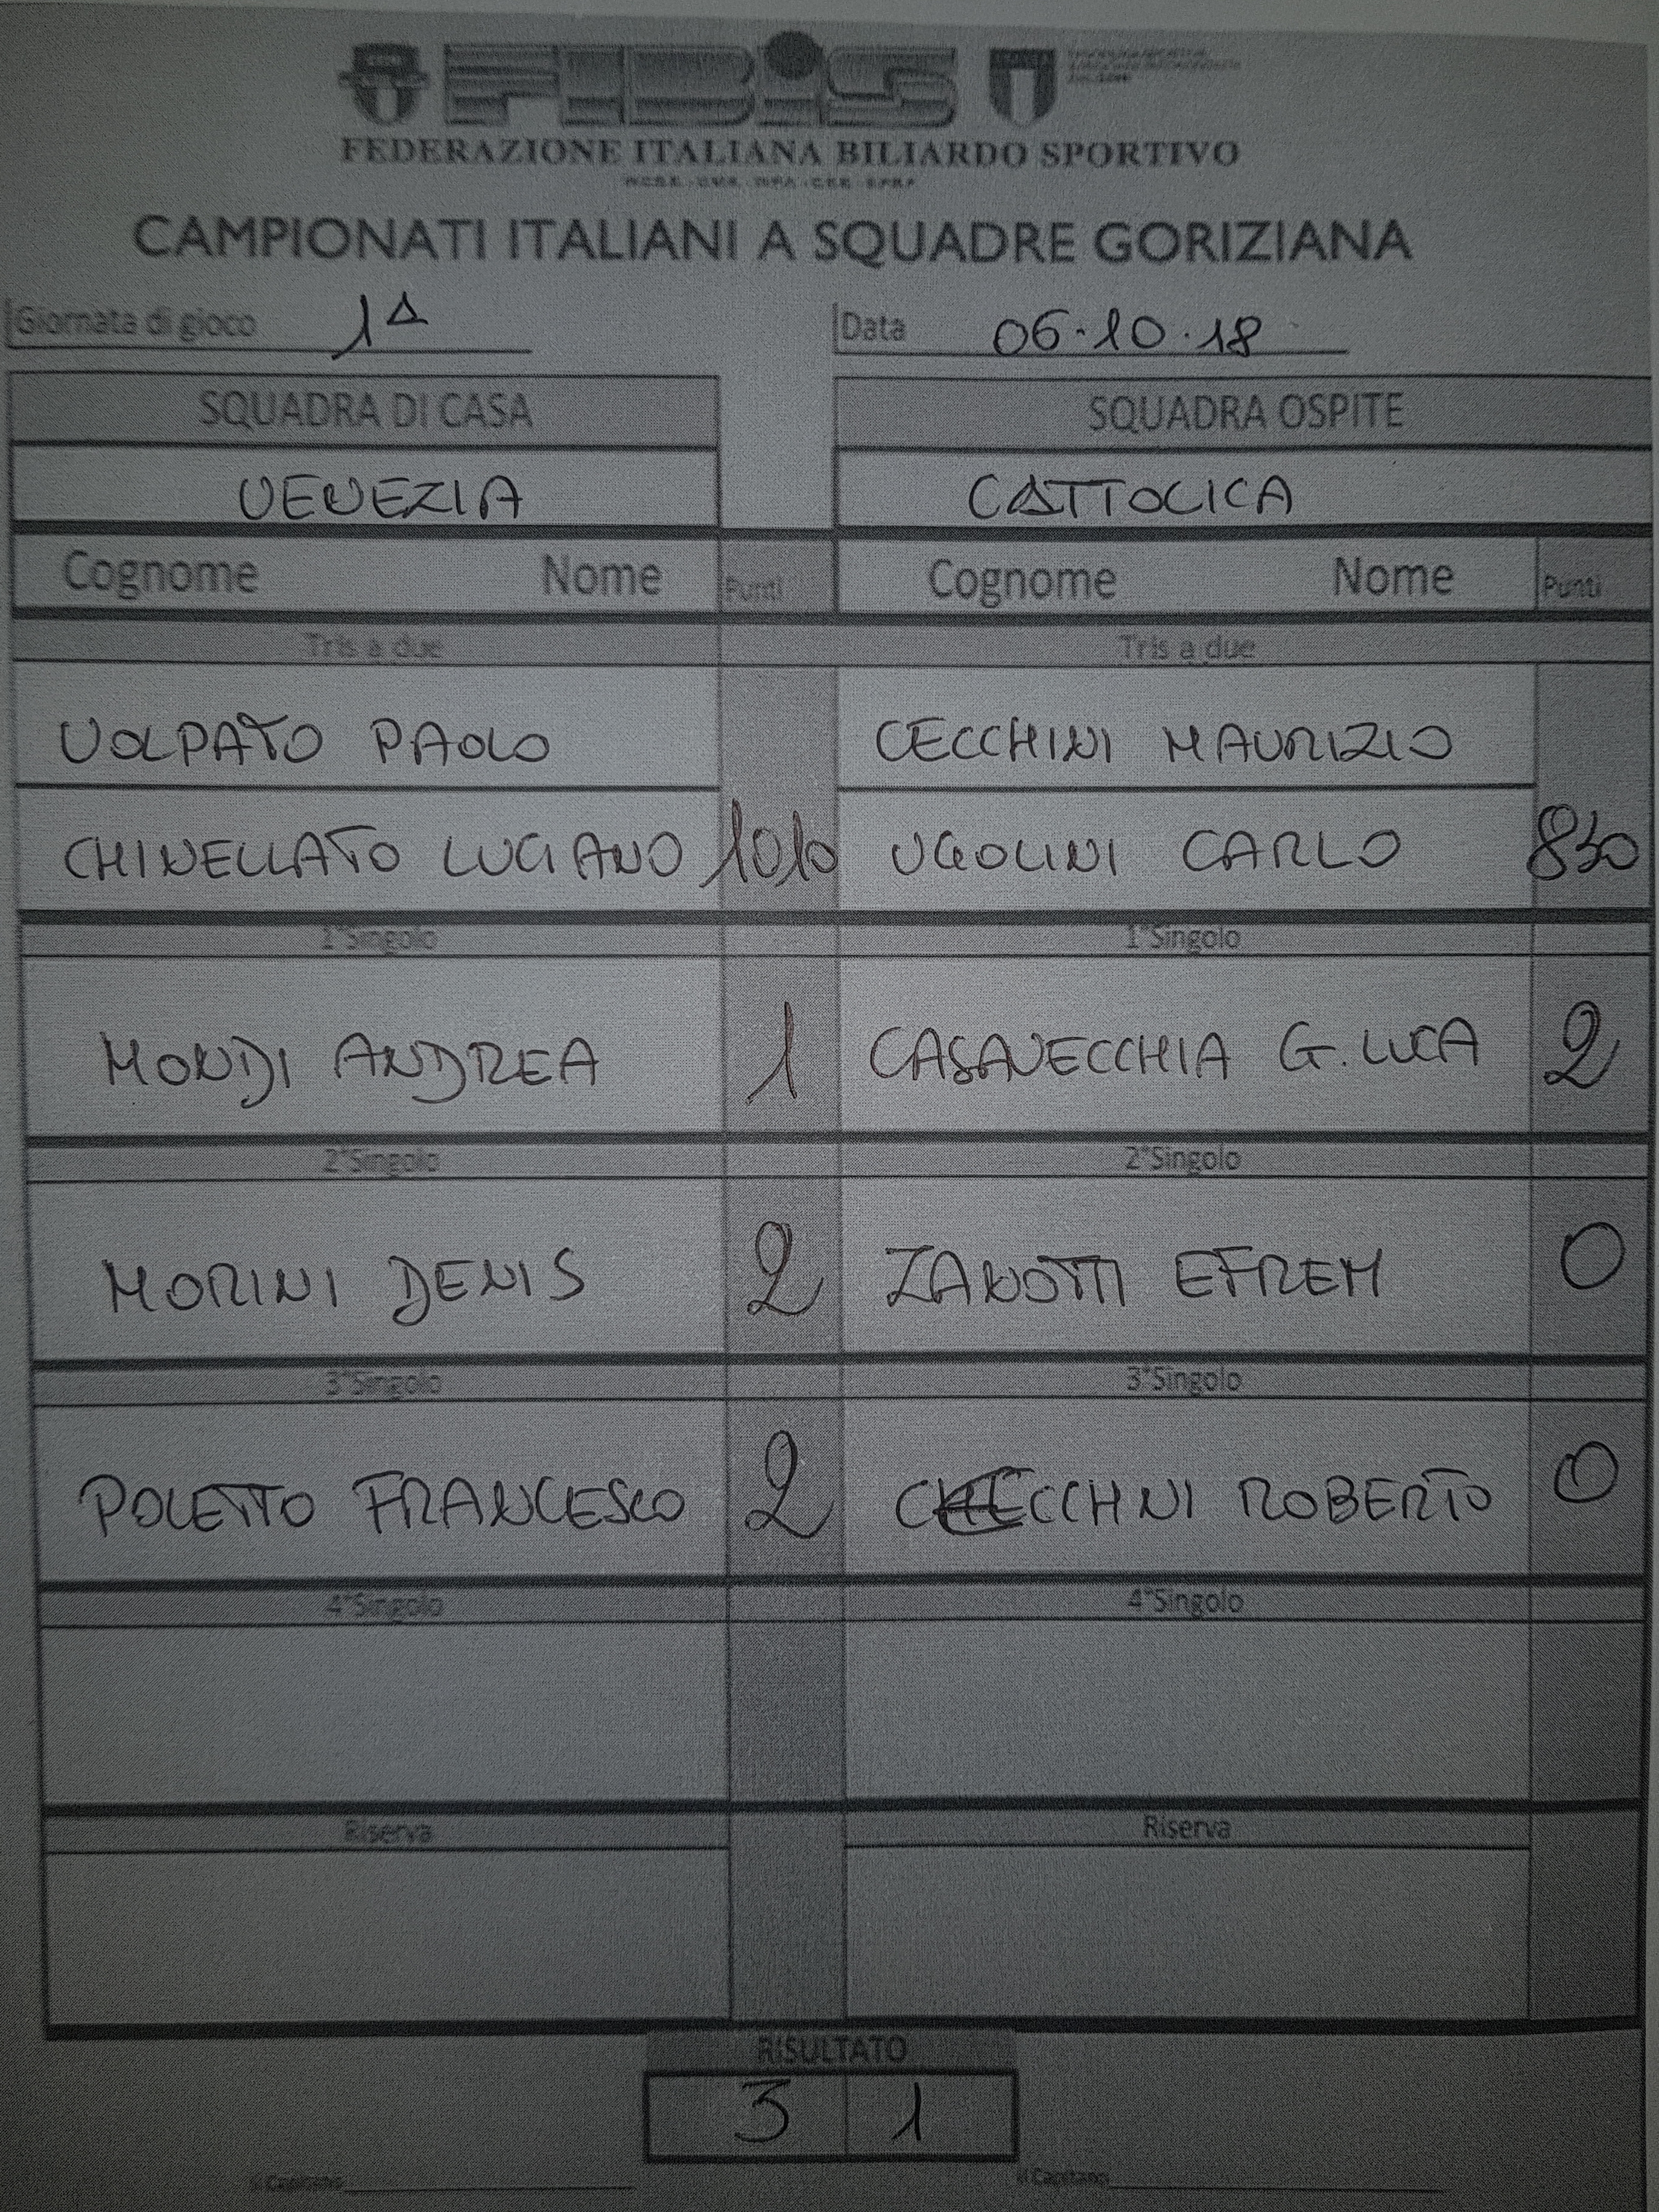 FIBiS
FEDERAZIONE ITALIANA BILIARDO SPORTIVO
CAMPIONATI ITALIANI A SQUADRE GORIZIANA
Giornata di gioco 1^ Data 06.10.18
SQUADRA DI CASA SQUADRA OSPITE
VENEZIA CATTOLICA
Cognome Nome Punti Cognome Nome Punti
Tris a due Tris a due
VOLPATO PAOLO CECCHINI MAURIZIO
CHINELLATO LUCIANO 1010 UGOLINI CARLO 830
1°Singolo 1°Singolo
MONDI ANDREA 1 CASAVECCHIA G. LUCA 2
2°Singolo 2°Singolo
MORINI DENIS 2 ZANOTTI EFREM 0
3°Singolo 3°Singolo
POLETTO FRANCESCO 2 CECCHINI ROBERTO 0
4°Singolo 4°Singolo
Riserva Riserva
RISULTATO
3 1
il Capitano il Capitano